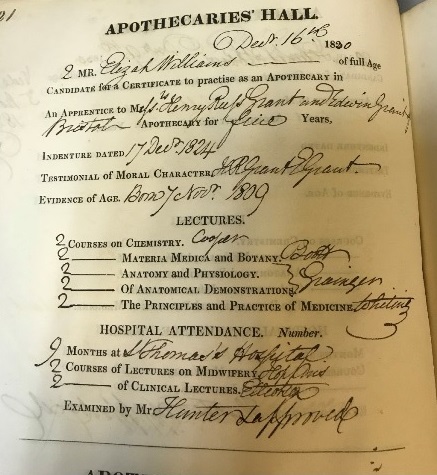 21
APOTHECARIES' HALL.
Decr. 16th 1830
2 MR. Elizah Williams of full Age
CANDIDATE for a CERTIFICATE to practise as an APOTHECARY in
An APPRENTICE to Messrs. Henry Rees Grant and Edwin Grant
Bristol APOTHECARY for five YEARS,
INDENTURE DATED 17 Decr. 1824
TESTIMONIAL OF MORAL CHARACTER HR Grant E Grant.
EVIDENCE OF AGE. Born 7 Novr. 1809
LECTURES.
2 COURSES ON CHEMISTRY. Cooper
2 MATERIA MEDICA AND BOTANY. Bott
2 ANATOMY AND PHYSIOLOGY.
2 OF ANATOMICAL DEMONSTRATIONS. Grainger
2 THE PRINCIPLES AND PRACTICE OF MEDICINE. Whiting
HOSPITAL ATTENDANCE. Number.
9 MONTHS at St Thomas's Hospital
2 COURSES OF LECTURES ON MIDWIFERY Hopkins
2 OF CLINICAL LECTURES. Elliotson
EXAMINED BY MR Hunter & approved